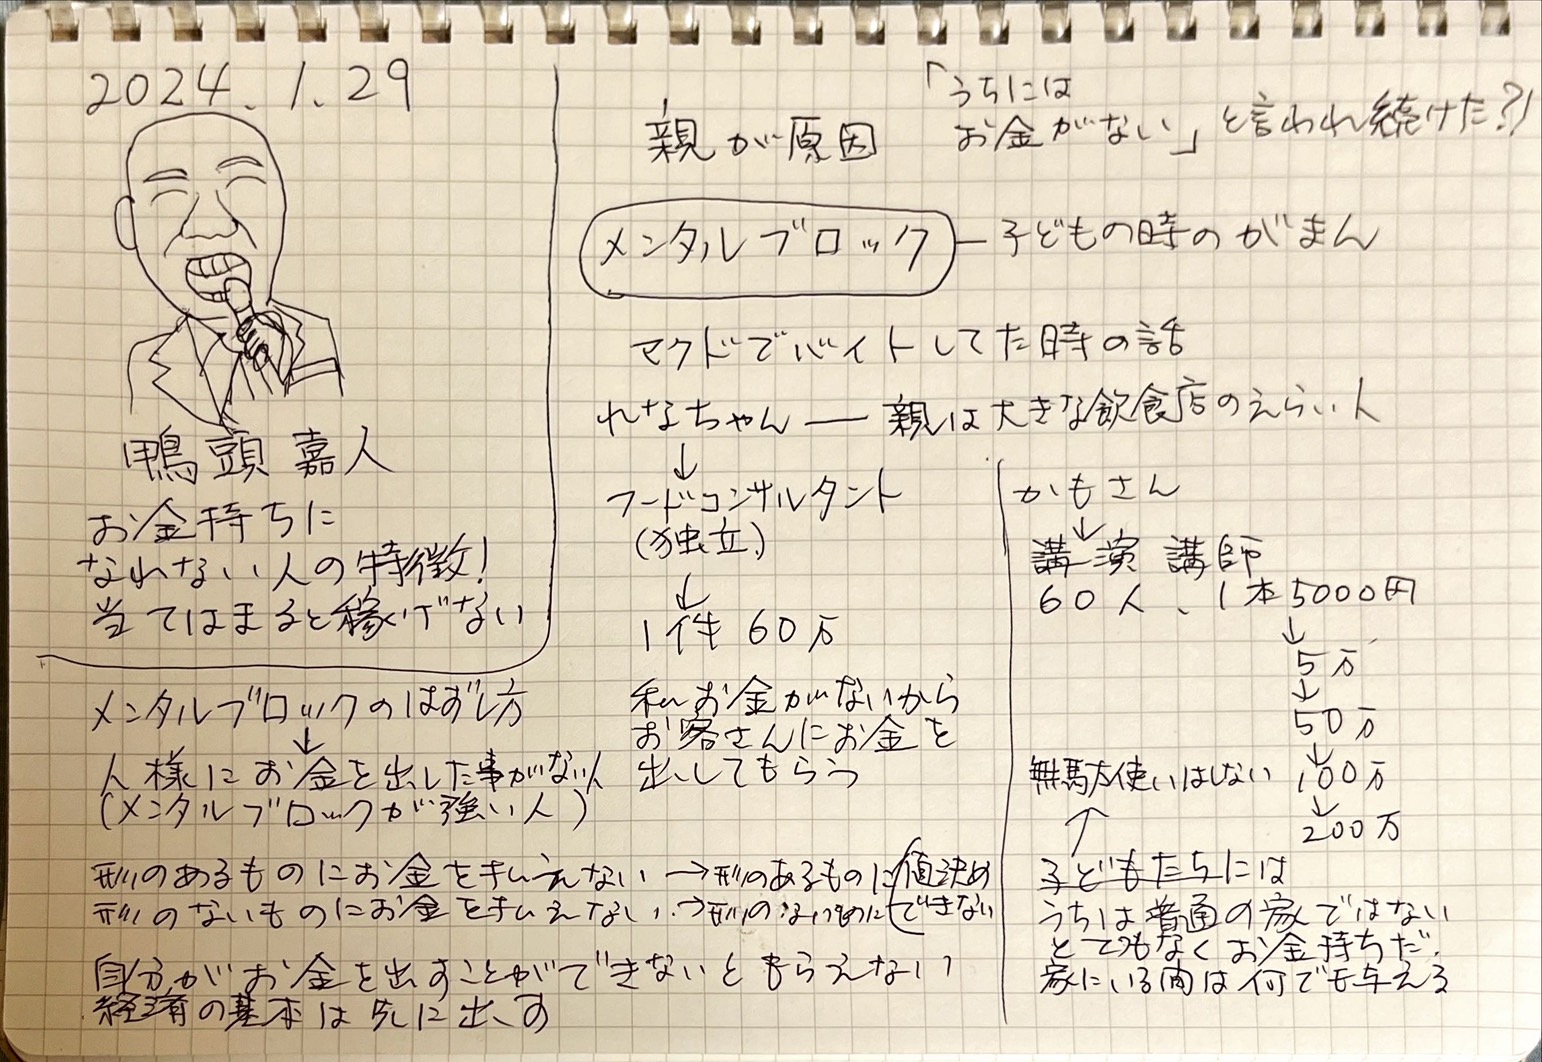 2024.1.29
鴨頭嘉人
お金持ちに
なれない人の特徴!
当てはまると稼げない
親が原因
「うちには
お金がない」と言われ続けた?!
メンタルブロック―子どもの時のがまん
マクドでバイトしてた時の話
れなちゃん―親は大きな飲食店のえらい人
↓
フードコンサルタント
(独立)
↓
1件 60万
私お金がないから
お客さんにお金を
出してもらう
かもさん
↓
講演講師
60人、1本5000円
↓
5万
↓
50万
↓
100万
↓
200万
無駄使いはしない
↑
子どもたちには
うちは普通の家ではない
とてつもなくお金持ちだ。
家にいる間は何でも与える
メンタルブロックのはずし方
↓
人様にお金を出した事がない人
(メンタルブロックが強い人)
形のあるものにお金を払えない→形のあるものに値決め
形のないものにお金を払えない→形のないものにできない
自分がお金を出すことができないともらえない
経済の基本は先に出す